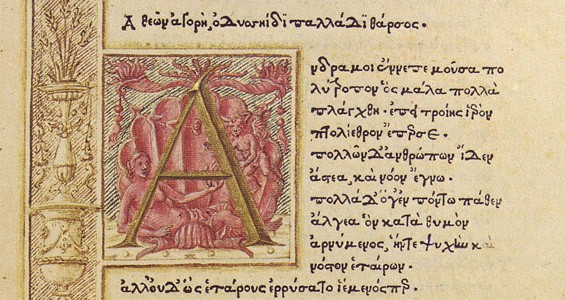 Α θεῶν ἀγορὴ, ὀδυσηΐδϊ παλλάδϊ θάρσος.
Ανδρα μοι ἔννεπε μοῦσα πο
λύτροπον ὃς μάλα πολλὰ
πλάγχθη. ἐπεὶ τροίης ἱερὸν
πτολίεθρον ἔπερσε.
πολλῶν δ' ἀνθρώπων ἴδεν
ἄστεα, καὶ νόον ἔγνω.
πολλὰ δ' ὅγ' ἐν πόντω πάθεν
ἄλγεα ὃν κατὰ θυμὸν
ἀρνύμενος, ψυχὴν καὶ
νόστον ἑταίρων.
ἀλλ' οὐδ' ὣς ἑτάρους ἐρρύσατο ἱέμενός περ.